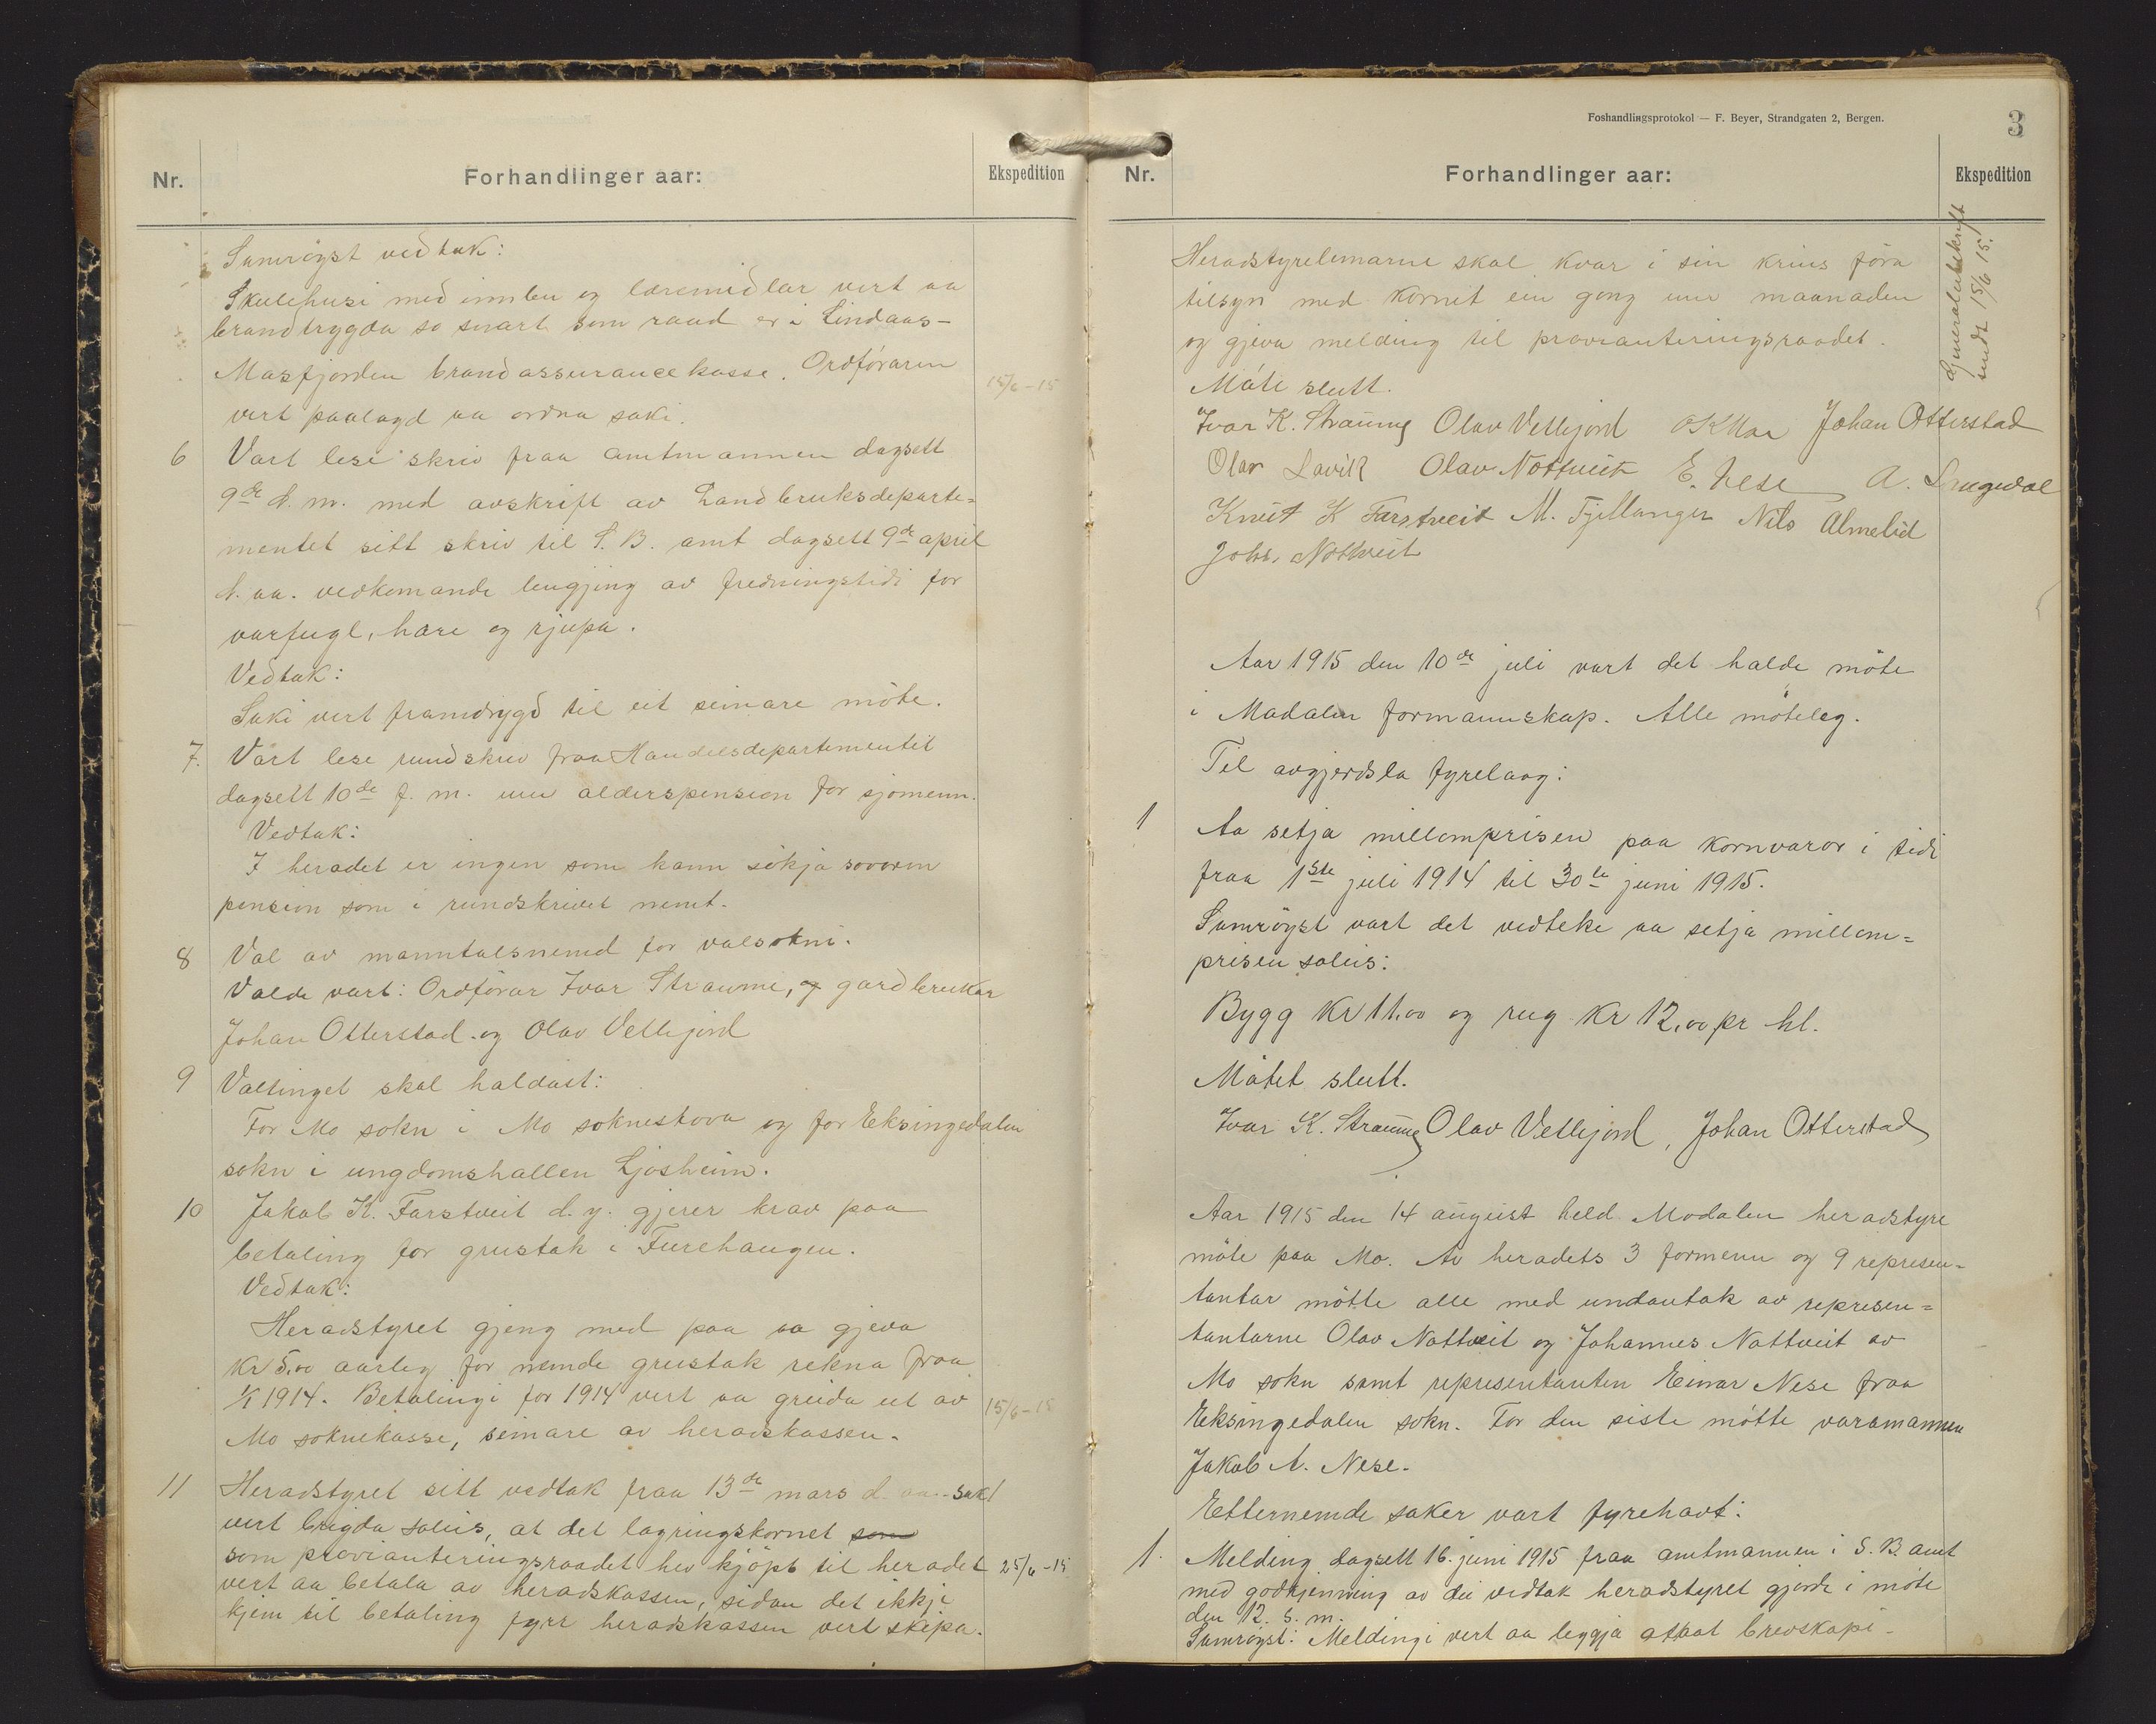 Nr.
Forhandlinger aar:
Ekspedition
Samröyst vedtak:
Skulehusi med innbu og læremidlar vert aa
brandtrygda so snart som raad er i Lindaas-
Masfjorden brandassurancekasse. Ordföraren
vert paalagd aa ordna saki.
15/6-15
6 Vart lese skriv fraa amtmannen dagsett
9de d. m. med avskrift av Landbruksdeparte=
mentet sitt skriv til S. B. amt dagsett 9de april
d. aa. vedkomande lengjing av fredningstidi for
aarfugl, hare og rjupa.
Vedtak:
Saki vert framdrygd til eit seinare möte.
7. Vart lese rundskriv fraa Handelsdepartementet
dagsett 10de f. m. um alderspension for sjömenn.
Vedtak:
I heradet er ingen som kann sökja sovoren
pension som i rundskrivet nemt.
8 Val av manntalsnemd for valsokni.
Valde vart: Ordförar Ivar Straume, og gardbrukar
Johan Otterstad og Olav Vetlejord
9 Valtinget skal haldast:
For Mo sokn i Mo soknestova og for Eksingedalen
sokn i ungdomshallen Ljosheim.
10 Jakob K. Farstveit d. y. gjerer krav paa
betaling for grustak i Furehaugen.
Vedtak:
Heradstyret gjeng med paa aa gjeva
kr 5.00 aarleg for nemde grustak rekna fraa
1/1 1914. Betalingi for 1914 vert aa greida ut av
15/6-15
Mo soknekasse, seinare av heradskassen.
11 Heradstyret sitt vedtak fraa 13de mars d. aa. sak 1
vert brigda soleis, at det lagringskornet som
som provianteringsraadet hev kjöpt til heradet
25/6-15
vert aa betala av heradskassen, sidan det ikkje
kjem til betaling fyrr heradskassen vert skipa.
Foshandlingsprotokol — F. Beyer, Strandgaten 2, Bergen.
3
Nr.
Forhandlinger aar:
Ekspedition
Generalutskrift
sendt 15/6 15.
Heradstyrelemarne skal kvar i sin krins föra
tilsyn med kornet ein gong um maanaden
og gjeva melding til provianteringsraadet.
Möte slutt.
Ivar K. Straume Olav Vetlejord O K Moe Johan Otterstad
Olav Lavik Olav Nottveit E. Nese A. Langedal
Knut K Farstveit M. Fjellanger Nils Almelid
Johs. Nottveit
Aar 1915 den 10de juli vart det halde möte
i Modalen formannskap. Alle möteleg.
Til avgjerdsla fyrelaag:
1 Aa setja millomprisen paa kornvaror i tidi
fraa 1ste juli 1914 til 30te juni 1915.
Samröyst vart det vedteke aa setja millom=
prisen soleis:
Bygg kr 11.00 og rug kr 12,00 pr hl.
Mötet slutt.
Ivar K. Straume Olav Vetlejord, Johan Otterstad
Aar 1915 den 14 august held Modalen heradstyre
möte paa Mo. Av heradets 3 formenn og 9 represen=
tantar mötte alle med undantak av represen=
tantarne Olav Nottveit og Johannes Nottveit av
Mo sokn samt representanten Einar Nese fraa
Eksingedalen sokn. For den siste mötte varamannen
Jakob A. Nese.
Etternemde saker vart fyrehavt:
1. Melding dagsett 16. juni 1915 fraa amtmannen i S. B. amt
med godkjenning av dei vedtak heradstyret gjorde i möte
den 12. s. m.
Samröyst: Meldingi vert aa leggja attaat brevskapi.